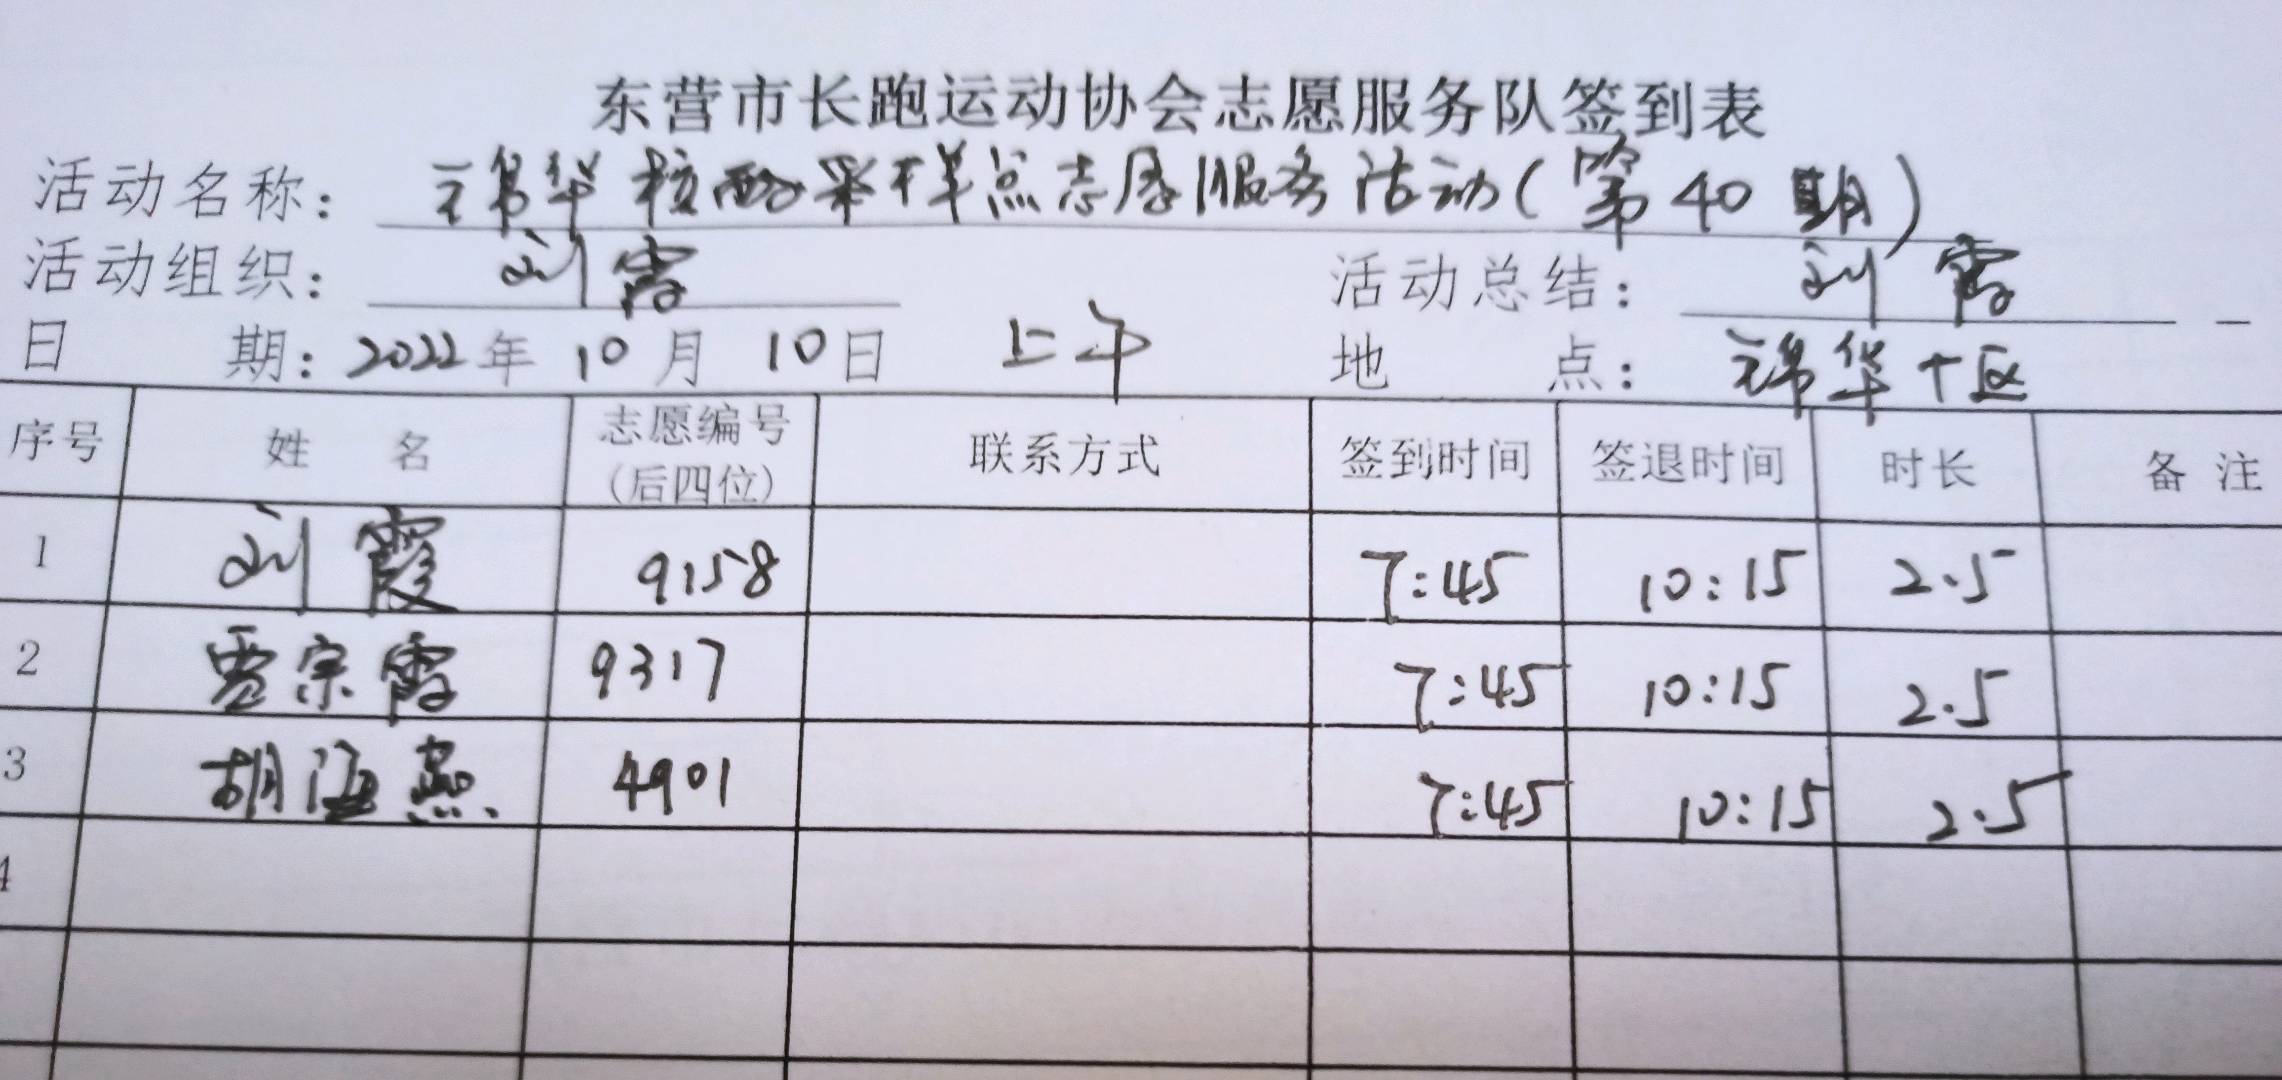 东营市长跑运动协会志愿服务队签到表
活动名称: 锦华核酸采样点志愿服务活动(第40期)
活动组织: 刘霞 活动总结: 刘霞
日 期: 2022年 10月 10日 上午 地 点: 锦华十区
序号 姓 名 志愿编号(后四位) 联系方式 签到时间 签退时间 时长 备 注
1 刘霞 9158 7:45 10:15 2.5
2 贾宗霞 9317 7:45 10:15 2.5
3 胡海燕 4901 7:45 10:15 2.5
4